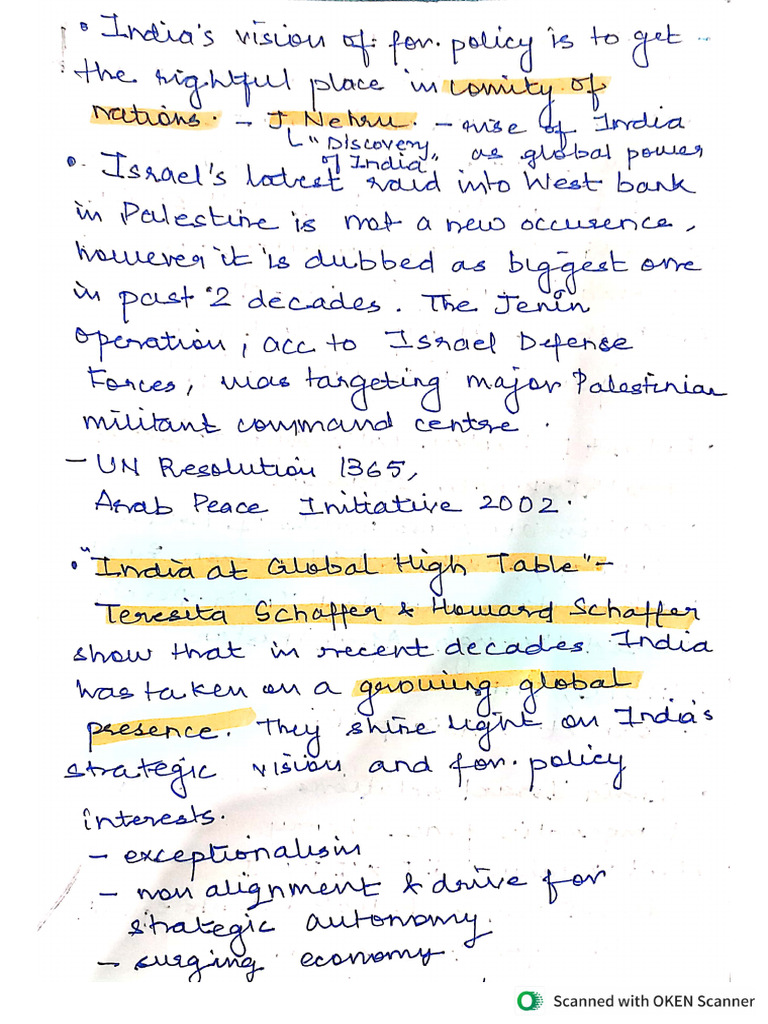 • India's vision of for. policy is to get
the rightful place in comity of
nations. – J. Nehru. – rise of India
↳ "Discovery as global power
of India"
• Israel's latest raid into West bank
in Palestine is not a new occurence,
however it is dubbed as biggest one
in past 2 decades. The Jenin
operation, acc to Israel Defense
Forces, was targeting major Palestinian
militant command centre.
– UN Resolution 1365,
Arab Peace Initiative 2002.
• "India at Global High Table" –
Teresita Schaffer & Howard Schaffer
show that in recent decades India
has taken on a growing global
presence. They shine light on India's
strategic vision and for. policy
interests.
– exceptionalism
– non alignment & drive for
strategic autonomy.
– surging economy.
Scanned with OKEN Scanner